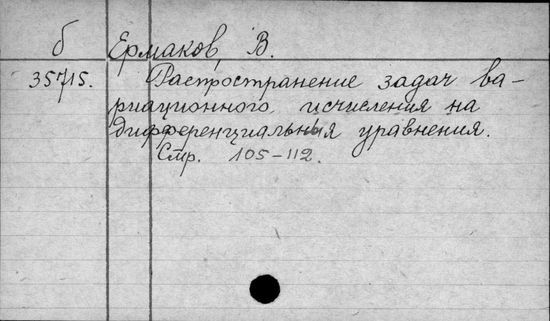 б Ермаков, В.
35715. Распространение задач ва-
риационного исчисления на
дифференциальныя уравнения.
Стр. 105-112.